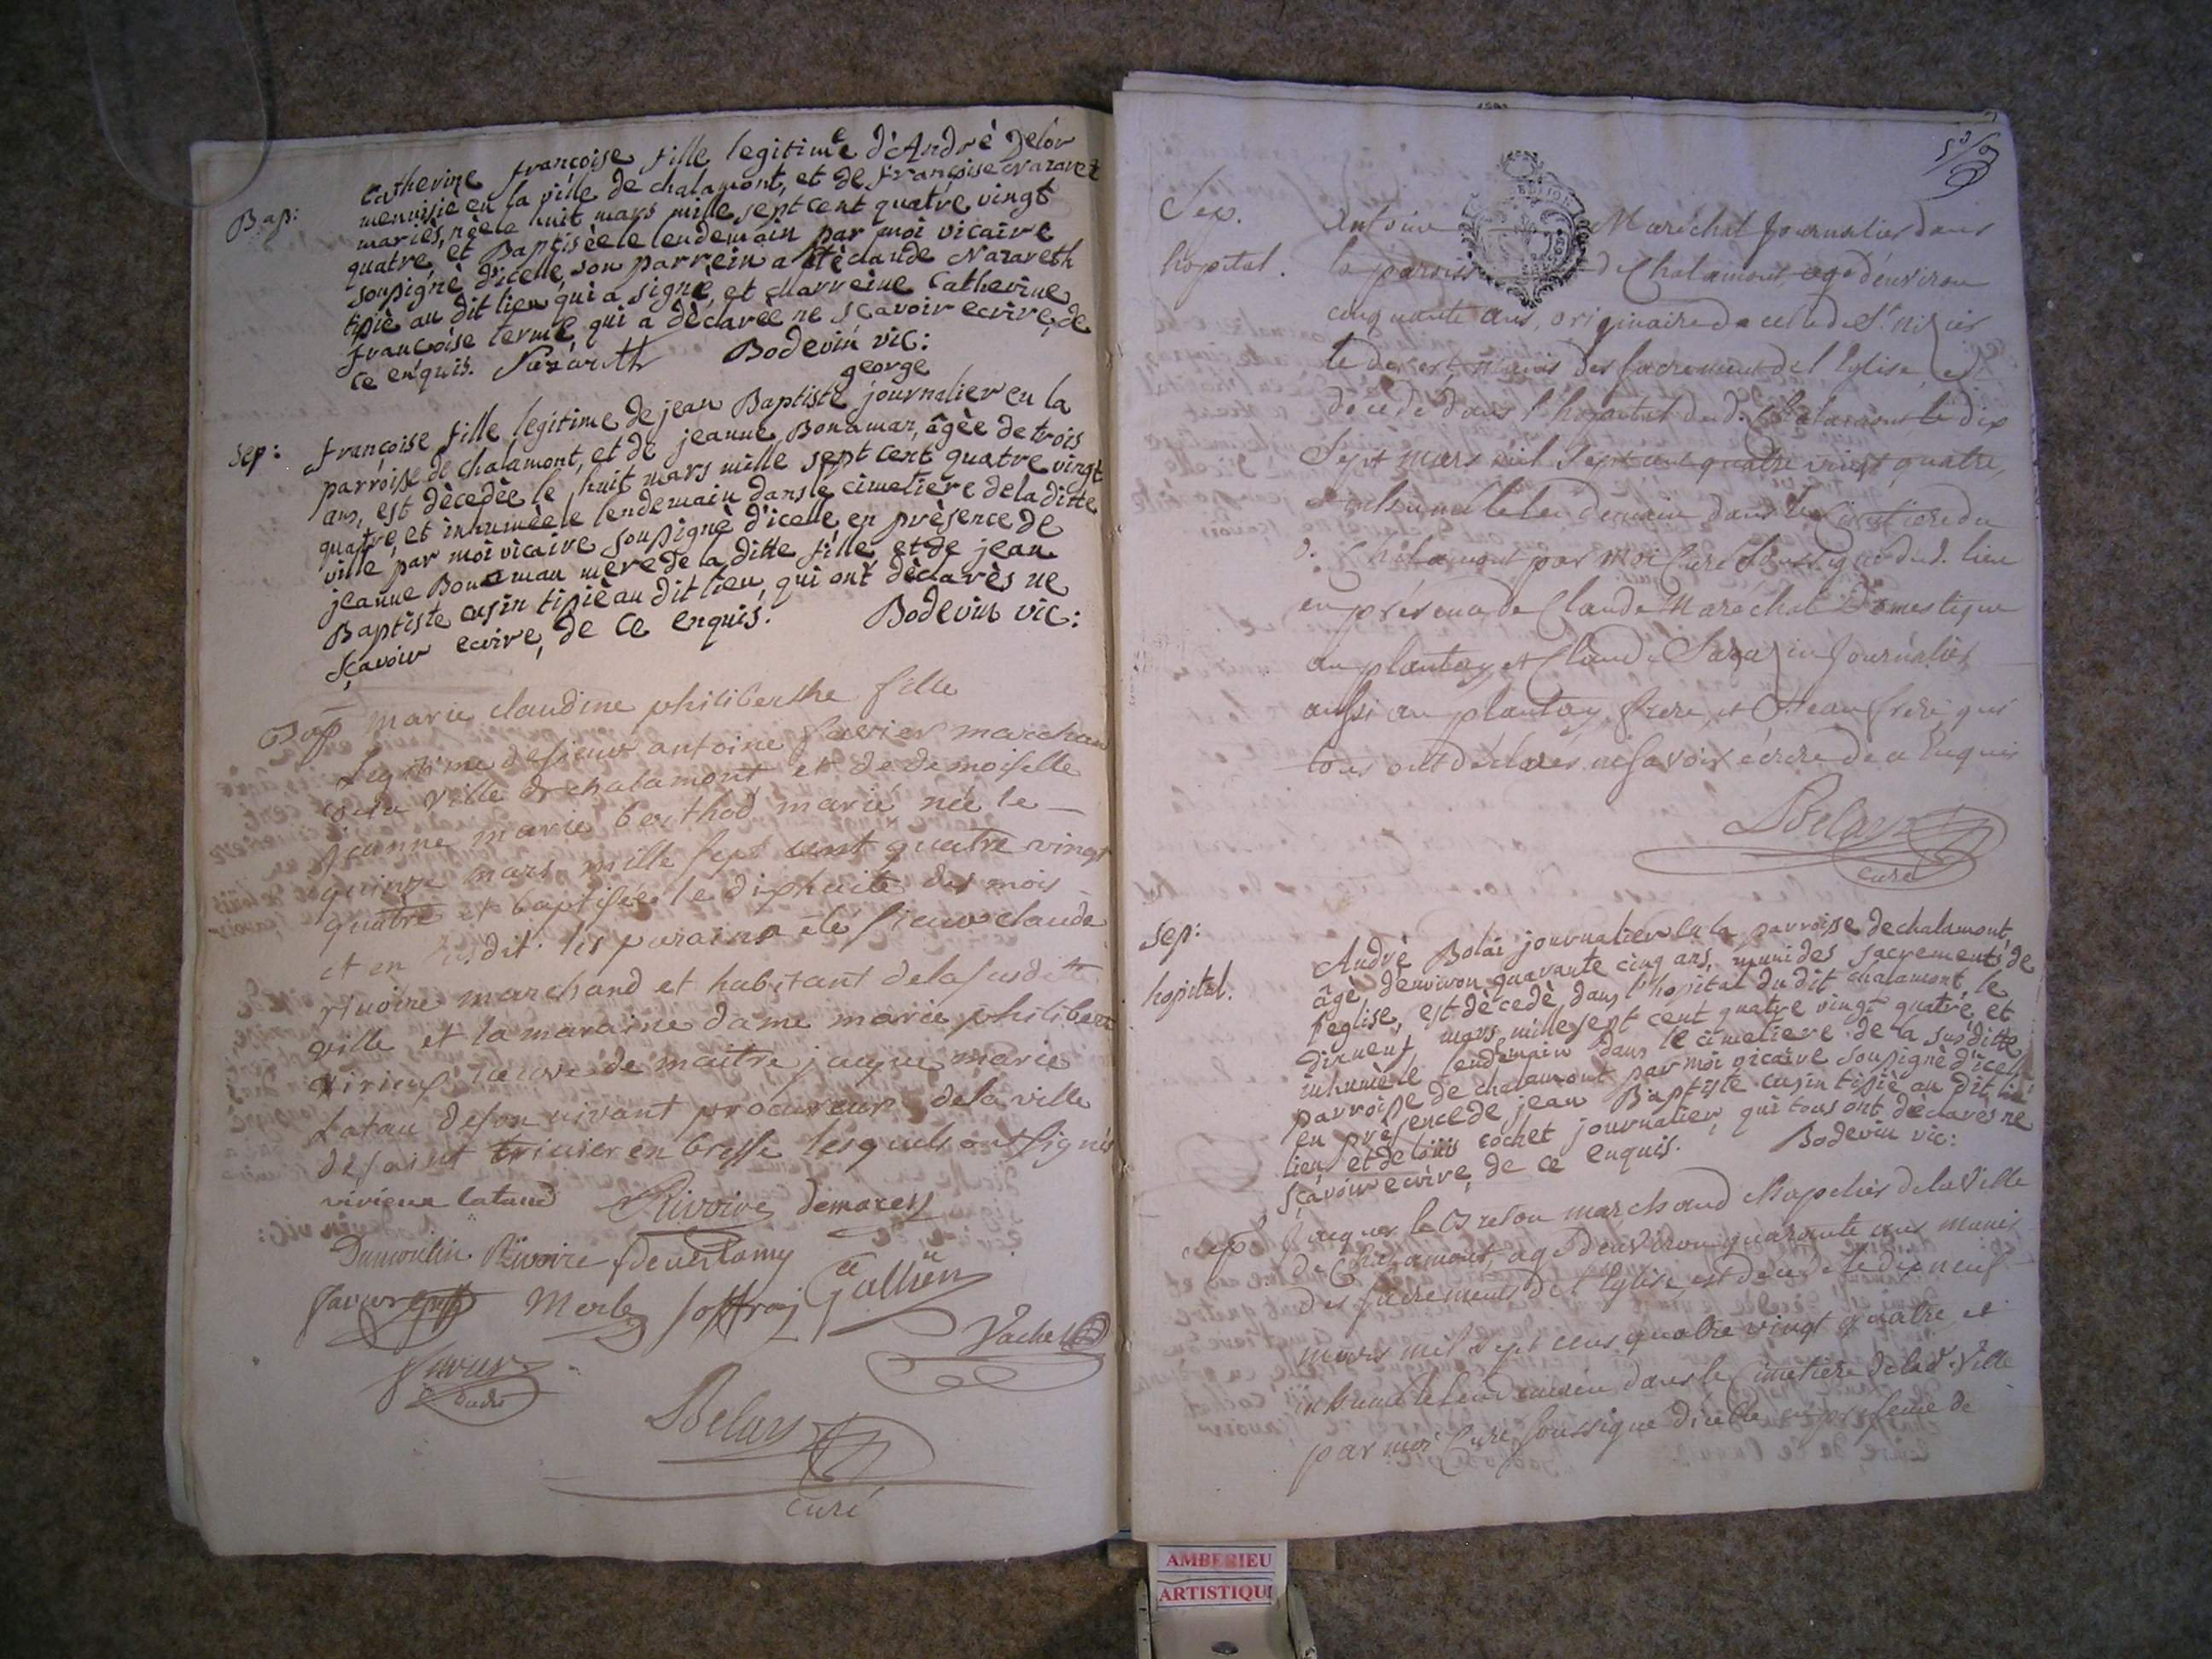 Bap:
Catherine françoise fille legitime d'Andrè Delor
menuisie en la ville de chalamont, et de françoise Nazaret
mariès, nèe le huit mars mille sept cent quatre vingt
quatre, et Baptisèe le lendemain par moi vicaire
soussignè d'icelle, son parrein a ètè claude Nazareth
tissiè au dit lieu qui a signè, et Marreine Catherine
françoise terme, qui a dèclarèe ne scavoir ecrire, de
ce enquis. Nazareth Bodevin vic:
george
sep:
françoise fille legitime de jean Baptiste journalier en la
parroisse de chalamont, et de jeanne Bonaman, âgèe de trois
ans, est dècedèe le huit mars mille sept cent quatre vingt
quatre, et inhumèe le lendemain dans le cimetiere de la ditte
ville par moi vicaire soussignè d'icelle, en prèsence de
jeanne Bonaman mere de la ditte fille, et de jean
Baptiste cusin tissiè au dit lieu, qui ont dèclarès ne
sçavoir ecrire, de ce enquis. Bodevin vic:
Bap
marie claudine philiberthe fille
Legitime de sieur antoine favier marchan
de la ville de chalamont et de demoiselle
jeanne marie berthod marié née le
quinze mars mille sept cent quatre vingt
quatre et baptisée le dixhuite des mois
et en susdit. les parain a été sieur claude
rivoire marchand et habitant de la susditte
ville et la maraine dame marie philibert
virieux veuve de maitre jacque marie
Latau de son vivant procureur de la ville
de saint trivier en bresse lesquels ont signés
virieux lataud Rivoire demarest
Dumoulin Rivoire
favier Merle Joffray Gallien
Vachet
favier
Belay
curé
Sep.
hopital.
Antoine Maréchal Journalier dans
la paroisse de Chalamont, agé d'environ
cinquante ans, originaire de celle de St. nizier
le desert, munis des sacrements de l'Eglise, est
décédé dans l'hopital dud. Chalamont le dix
Sept mars mil Sept cent quatre vingt quatre,
et inhumé le lendemain dans le Cimetiere du
d. Chalamont par moi Curé Soussigné dud. lieu
en présence de Claude Maréchal Domestique
au plantay et Claude Sarazin Journalier
aussi au plantay, frere, et Beaufrere, qui
tous ont déclarés ne Savoir écrire de ce Enquis
Belay
curé
sep:
hopital.
Andrè Bolai journalier en la parroisse de chalamont,
âgè d'environ quarante cinq ans, muni des sacrements de
l'eglise, est dècedè dans l'hopital du dit chalamont, le
dixneuf mars, mille sept cent quatre vingt quatre, et
inhumè le lendemain dans le cimetiere de la susditte
parroisse de chalamont par moi vicaire soussignè d'icelle
en prèsence de jean Baptiste cusin tissiè au dit lieu
lieu, et de loüis cochet journalier, qui tous ont dèclarès ne
sçavoir ecrire, de ce enquis. Bodevin vic:
Sep
Jacques le Breton marchand Chapelier de la Ville
de Chalamont, agé d'environ quarante ans munis
des sacrements de l'Eglise, est décédé le dix neuf
mars mil sept cens quatre vingt quatre et
inhumé le lendemain dans le Cimetière de lad. Ville
par moi Curé soussigné d'icelle en présence de
AMBERIEU
ARTISTIQU